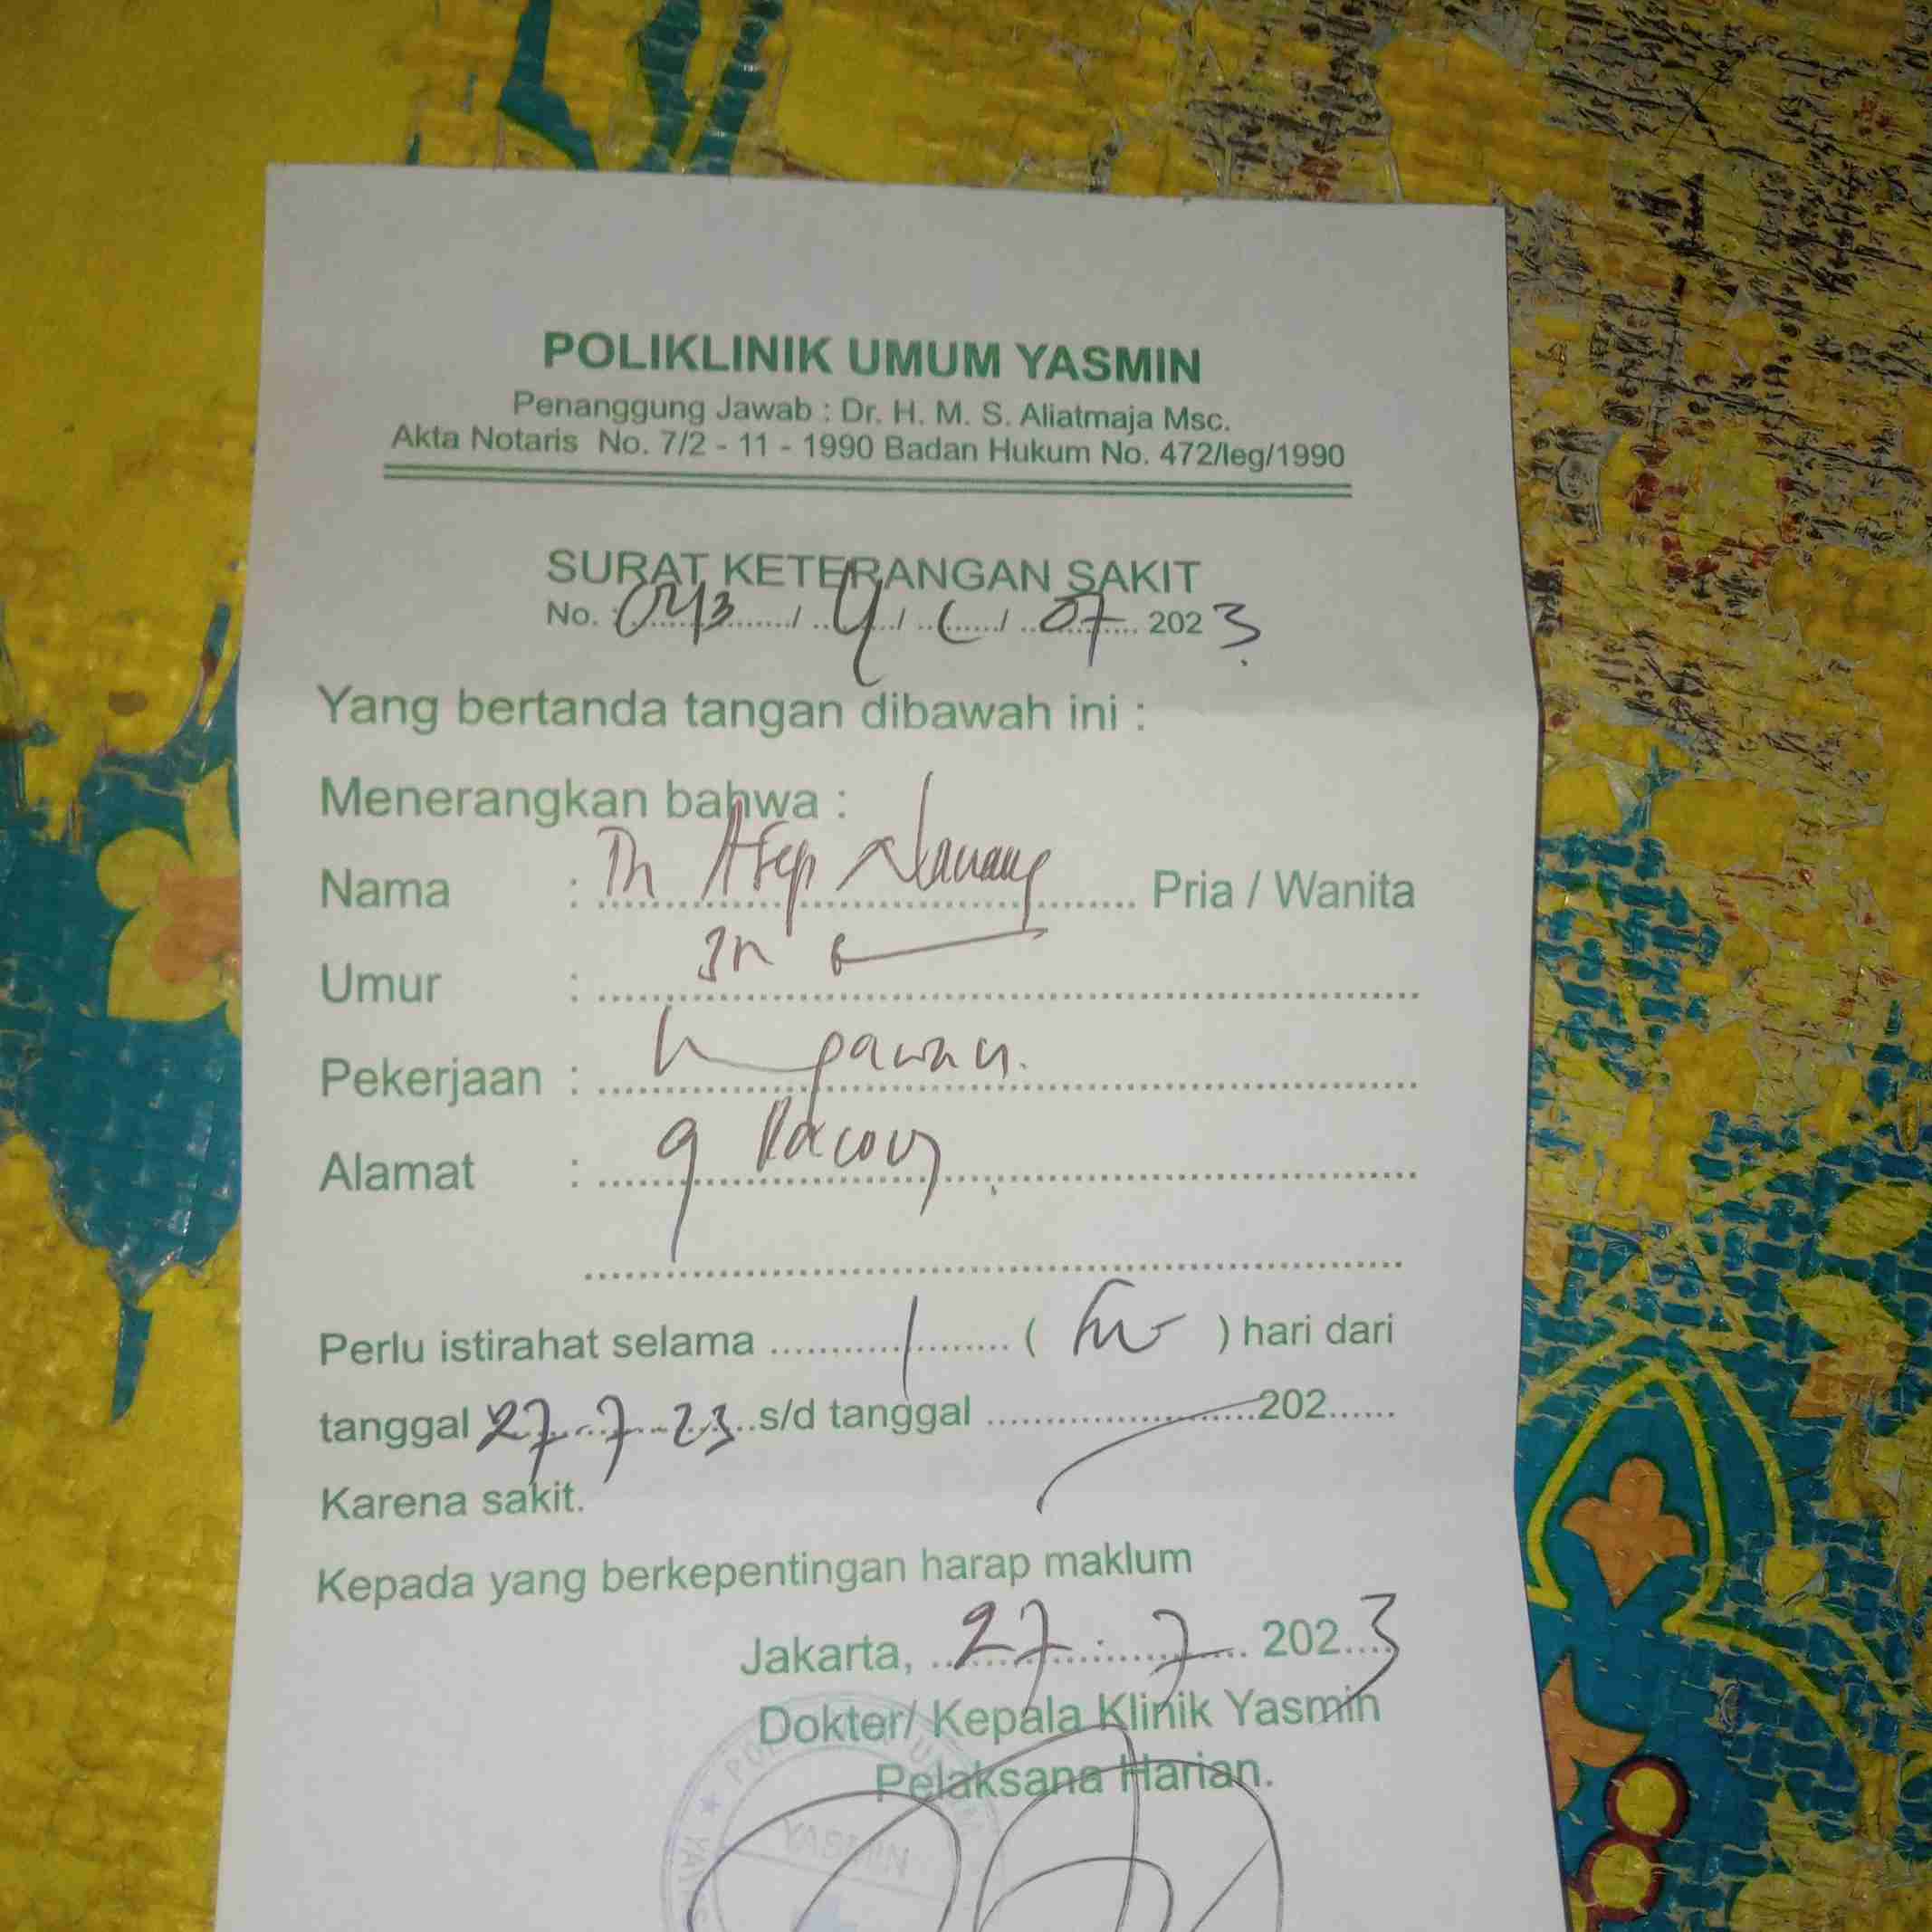 POLIKLINIK UMUM YASMIN
Penanggung Jawab : Dr. H. M. S. Aliatmaja Msc.
Akta Notaris No. 7/2 - 11 - 1990 Badan Hukum No. 472/leg/1990
SURAT KETERANGAN SAKIT
No. : 043 / / / 07 2023
Yang bertanda tangan dibawah ini :
Menerangkan bahwa :
Nama : Asep Pria / Wanita
Umur :
Pekerjaan :
Alamat :
Perlu istirahat selama 1 ( ) hari dari
tanggal 27-7-23 s/d tanggal 202
Karena sakit.
Kepada yang berkepentingan harap maklum
Jakarta, 27 - 7 2023
Dokter/ Kepala Klinik Yasmin
Pelaksana Harian.
YASMIN